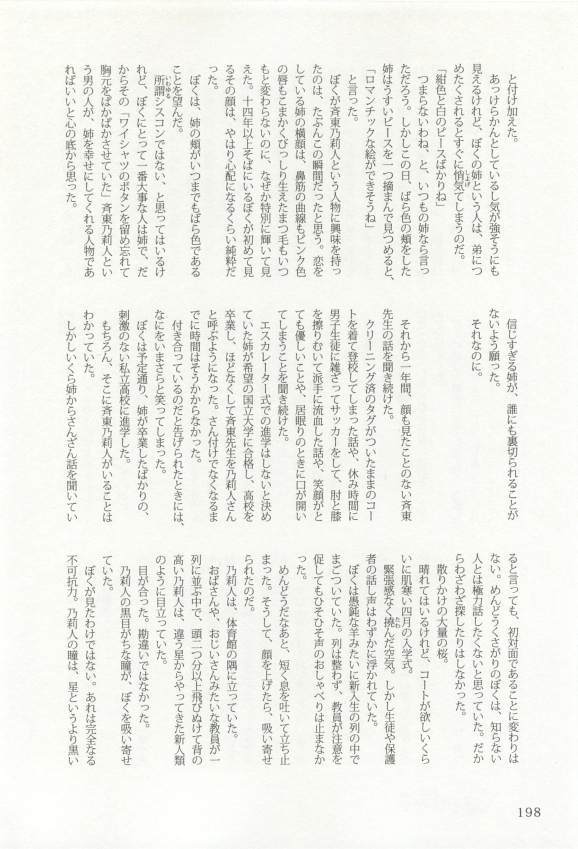 と付け加えた。
　あっけらかんとしているし気が強そうにも
見えるけれど、ぼくの姉という人は、弟につ
めたくされるとすぐに悄気てしまうのだ。
「紺色と白のピースばかりね」
　つまらないわね、と、いつもの姉なら言っ
ただろう。しかしこの日、ばら色の頬をした
姉はうすいピースを一つ摘まんで見つめると、
「ロマンチックな絵ができそうね」
　と言った。
　ぼくが斉東乃莉人という人物に興味を持っ
たのは、たぶんこの瞬間だったと思う。恋を
している姉の横顔は、鼻筋の曲線もピンク色
の唇もこまかくびっしり生えたまつ毛もいつ
もと変わらないのに、なぜか特別に輝いて見
えた。十四年以上そばにいるぼくが初めて見
るその顔は、やはり心配になるくらい純粋だ
った。
　ぼくは、姉の頬がいつまでもばら色である
ことを望んだ。
　所謂シスコンではない、と思ってはいるけ
れど、ぼくにとって一番大事な人は姉で、だ
からその「ワイシャツのボタンを留め忘れて
胸元をぱかぱかさせていた」斉東乃莉人とい
う男の人が、姉を幸せにしてくれる人物であ
ればいいと心の底から思った。
　信じすぎる姉が、誰にも裏切られることが
ないよう願った。
　それなのに。
　それから一年間、顔も見たことのない斉東
先生の話を聞き続けた。
　クリーニング済のタグがついたままのコー
トを着て登校してしまった話や、休み時間に
男子生徒に雑ざってサッカーをして、肘と膝
を擦りむいて派手に流血した話や、笑顔がと
ても優しいことや、居眠りのときに口が開い
てしまうことを聞き続けた。
　エスカレーター式での進学はしないと決め
ていた姉が希望の国立大学に合格し、高校を
卒業し、ほどなくして斉東先生を乃莉人さん
と呼ぶようになった。さん付けでなくなるま
でに時間はそうかからなかった。
　付き合っているのだと告げられたときには、
なにをいまさらと笑ってしまった。
　ぼくは予定通り、姉が卒業したばかりの、
刺激のない私立高校に進学した。
　もちろん、そこに斉東乃莉人がいることは
わかっていた。
　しかしいくら姉からさんざん話を聞いてい
ると言っても、初対面であることに変わりは
ない。めんどうくさがりのぼくは、知らない
人とは極力話したくないと思っていた。だか
らわざわざ探したりはしなかった。
　散りかけの大量の桜。
　晴れてはいるけれど、コートが欲しいくら
いに肌寒い四月の入学式。
　緊張感なく撓んだ空気。しかし生徒や保護
者の話し声はわずかに浮かれていた。
　ぼくは愚鈍な羊みたいに新入生の列の中で
まごついていた。列は整わず、教員が注意を
促してもひそひそ声のおしゃべりは止まなか
った。
　めんどうだなあと、短く息を吐いて立ち止
まった。そうして、顔を上げたら、吸い寄せ
られたのだ。
　乃莉人は、体育館の隅に立っていた。
　おばさんや、おじいさんみたいな教員が一
列に並ぶ中で、頭二つ分以上飛びぬけて背の
高い乃莉人は、違う星からやってきた新人類
のように目立っていた。
　目が合った。勘違いではなかった。
　乃莉人の黒目がちな瞳が、ぼくを吸い寄せ
ていた。
　ぼくが見たわけではない。あれは完全なる
不可抗力。乃莉人の瞳は、星というより黒い
198